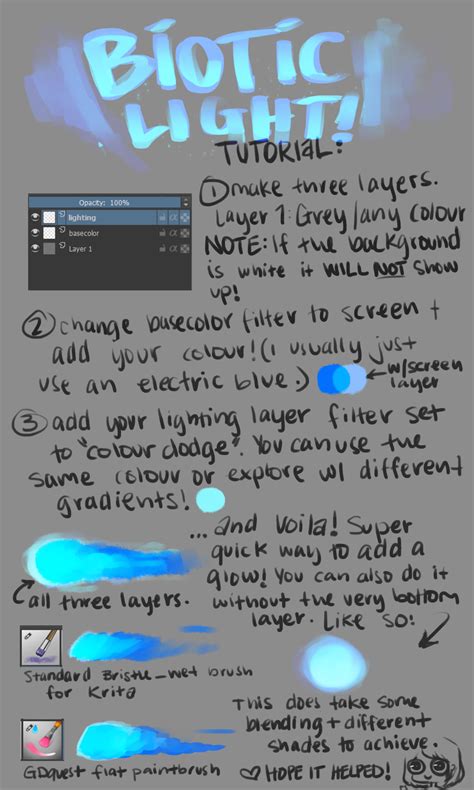 BiOTiC
LiGHT!
TUTORIAL:
Opacity: 100%
lighting
basecolor
Layer 1
① make three layers.
Layer 1: Grey/any colour
NOTE: If the background
is white it WILL NOT show
up!
② change basecolor filter to screen +
add your colour! (I usually just
use an electric blue :)
w/screen
layer
③ add your lighting layer filter set
to "colour dodge". You can use the
same colour or explore w/ different
gradients!
... and voila! Super
quick way to add a
glow! You can also do it
without the very bottom
layer. Like so:
all three layers.
Standard Bristle_wet brush
for Krita
This does take some
blending + different
shades to achieve.
GDquest flat paintbrush
♡ HOPE IT HELPED!